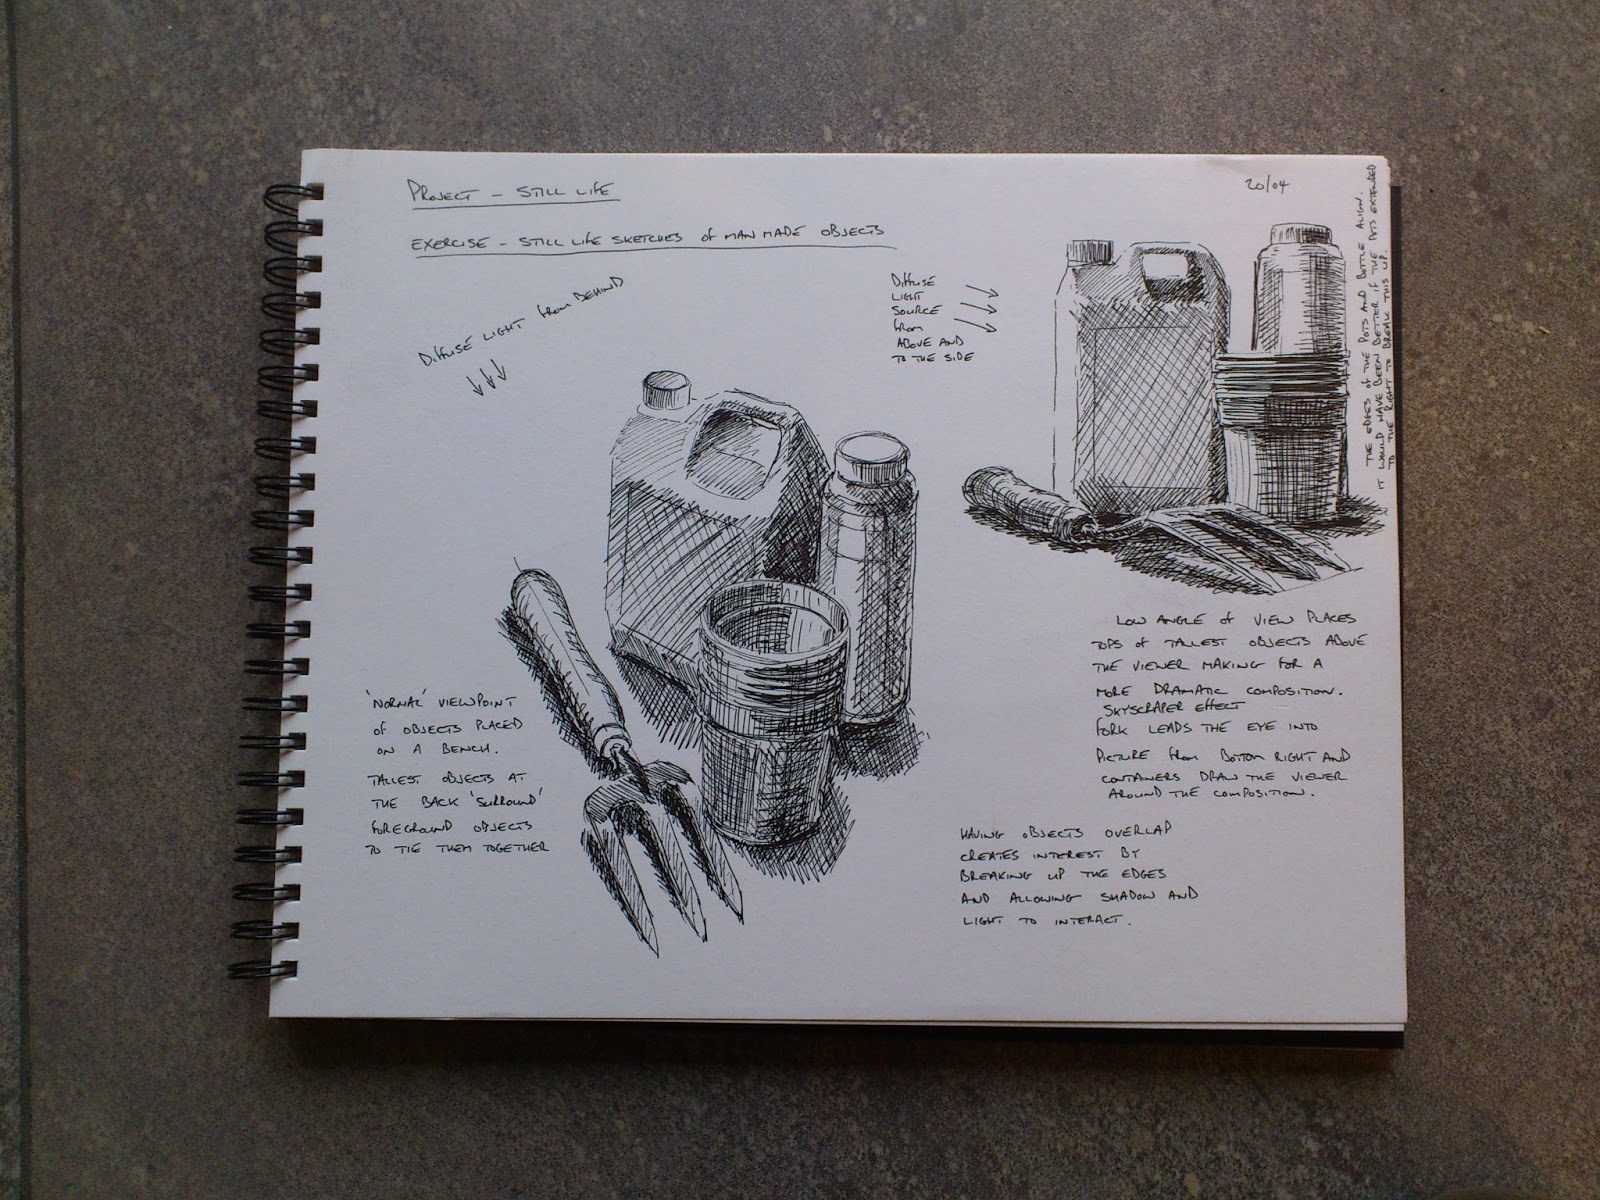 PROJECT - STILL LIFE
20/04
EXERCISE - STILL LIFE SKETCHES OF MAN MADE OBJECTS
DIFFUSE LIGHT FROM BEHIND
DIFFUSE
LIGHT
SOURCE
FROM
ABOVE AND
TO THE SIDE
THE EDGES OF THE POTS AND BOTTLE ALIGN.
IT WOULD HAVE BEEN BETTER IF THE POTS EXTENDED
TO THE RIGHT TO BREAK THIS UP.
'NORMAL' VIEWPOINT
OF OBJECTS PLACED
ON A BENCH.
TALLEST OBJECTS AT
THE BACK 'SURROUND'
FOREGROUND OBJECTS
TO TIE THEM TOGETHER
LOW ANGLE OF VIEW PLACES
TOPS OF TALLEST OBJECTS ABOVE
THE VIEWER MAKING FOR A
MORE DRAMATIC COMPOSITION.
SKYSCRAPER EFFECT
FORK LEADS THE EYE INTO
PICTURE FROM BOTTOM RIGHT AND
CONTAINERS DRAW THE VIEWER
AROUND THE COMPOSITION.
HAVING OBJECTS OVERLAP
CREATES INTEREST BY
BREAKING UP THE EDGES
AND ALLOWING SHADOW AND
LIGHT TO INTERACT.